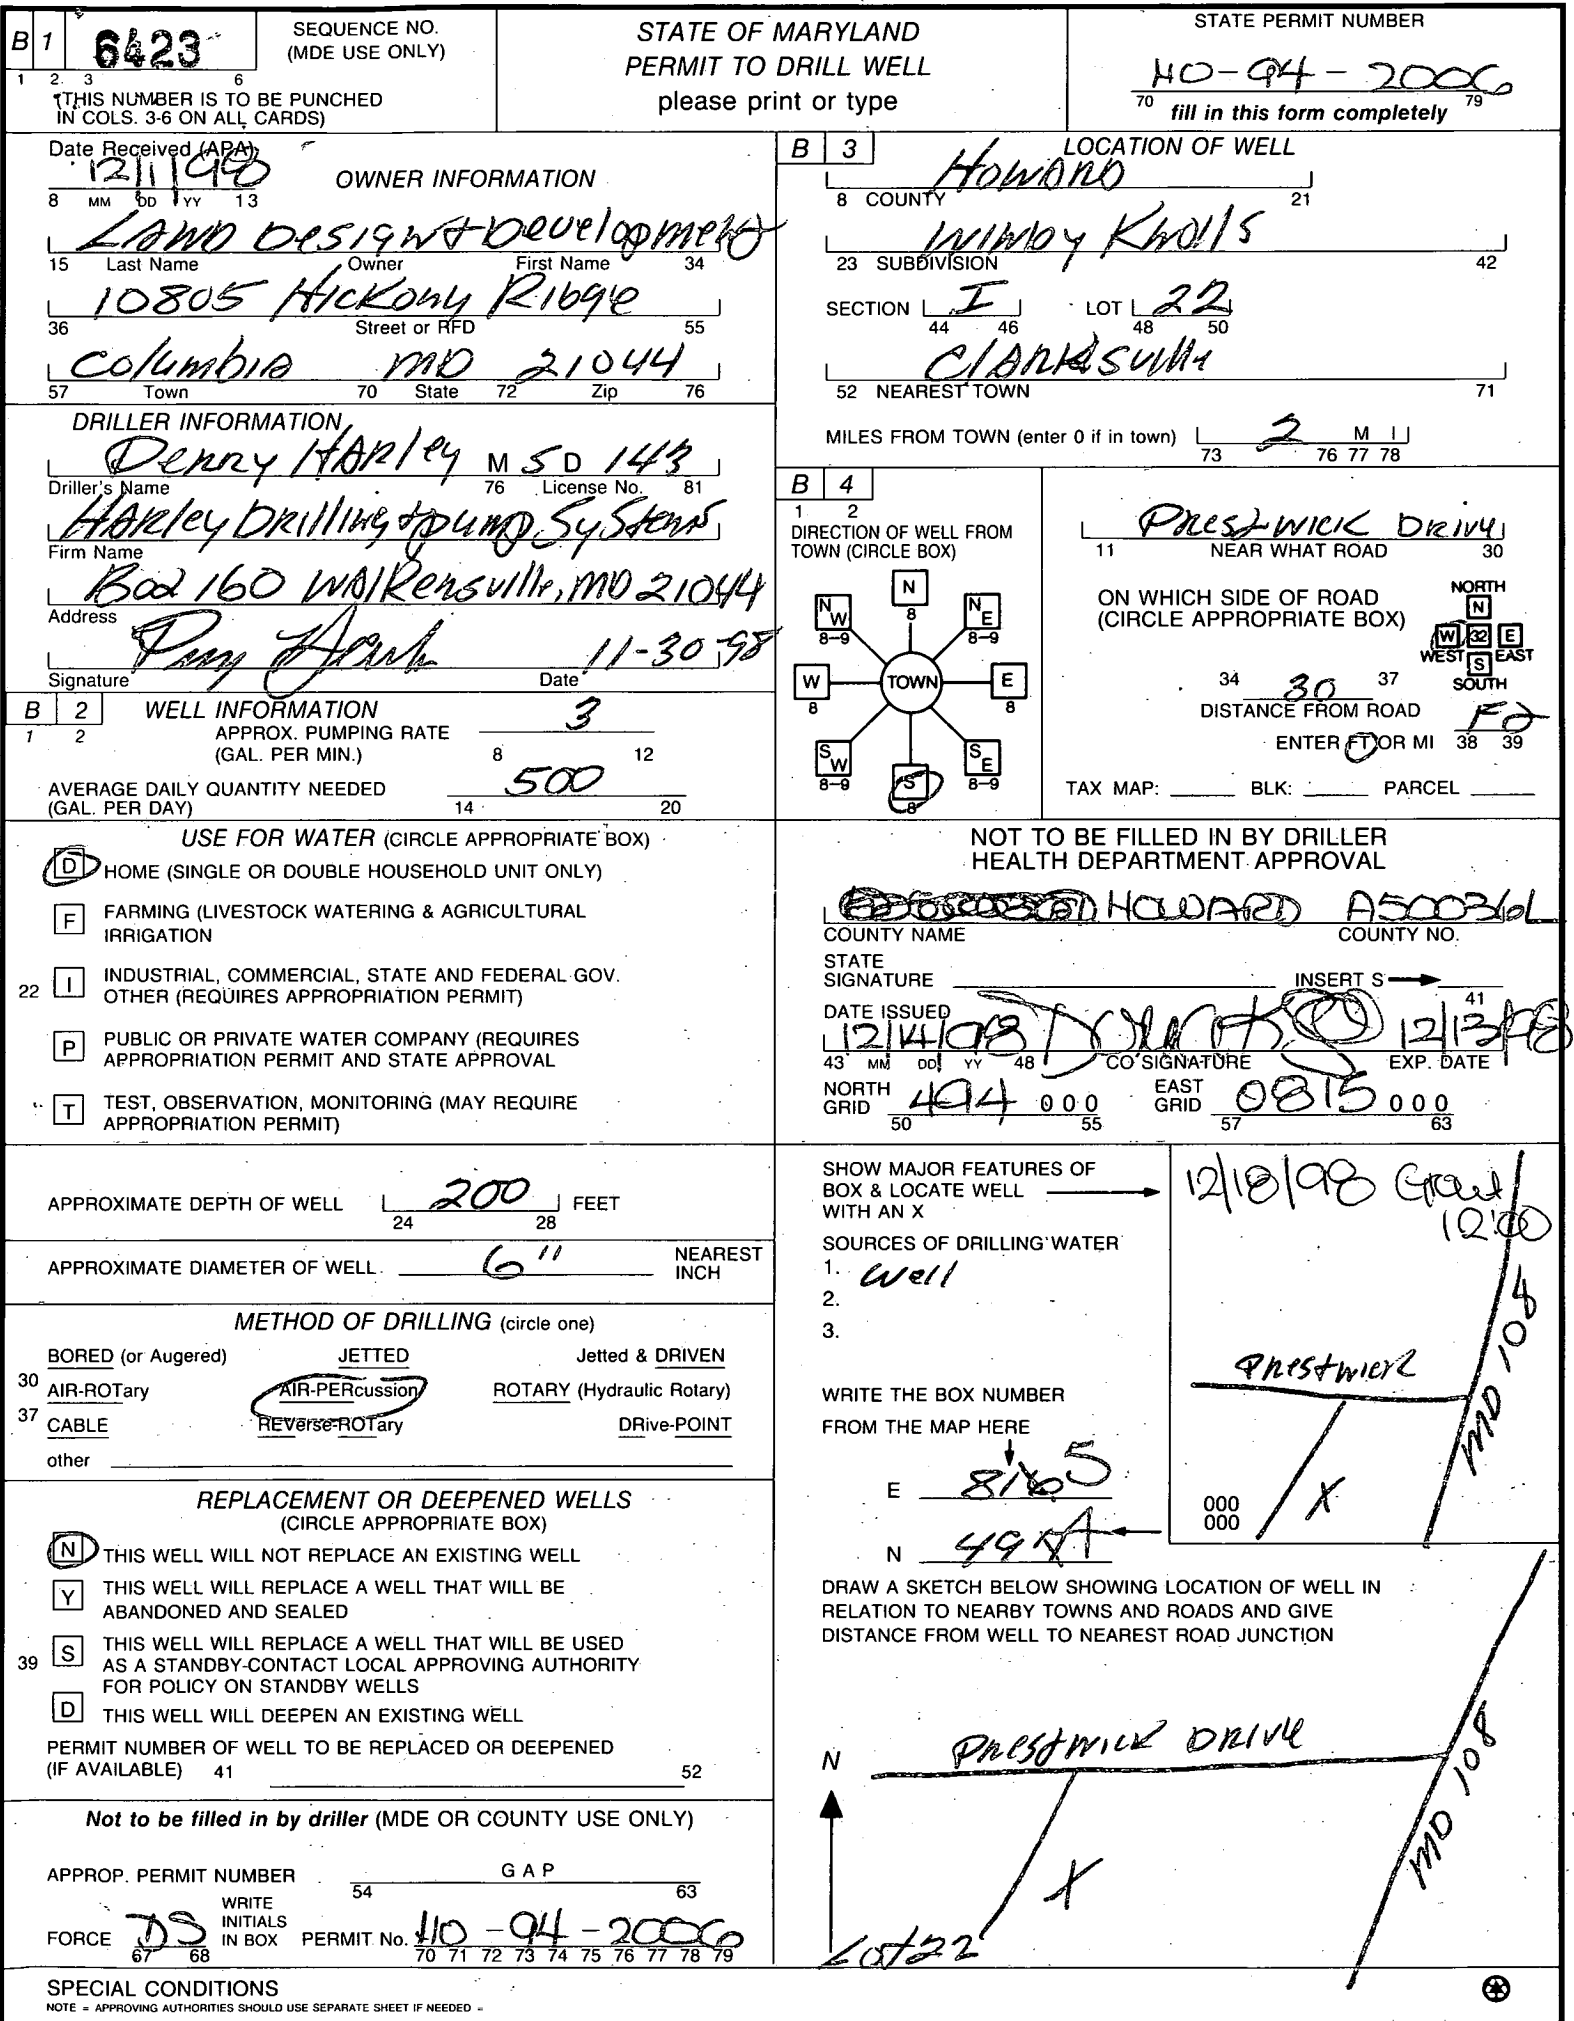 B 1 6423 SEQUENCE NO. (MDE USE ONLY)
1 2 3 6
(THIS NUMBER IS TO BE PUNCHED
IN COLS. 3-6 ON ALL CARDS)
STATE OF MARYLAND
PERMIT TO DRILL WELL
please print or type
STATE PERMIT NUMBER
HO-94-2006
70 79
fill in this form completely
Date Received (APA)
12/1/98
8 MM DD YY 13
OWNER INFORMATION
LAND Design & Development
15 Last Name Owner First Name 34
10805 Hickory Ridge
36 Street or RFD 55
Columbia MD 21044
57 Town 70 State 72 Zip 76
DRILLER INFORMATION
HARley M S D 143
Driller's Name 76 License No. 81
HARley Drilling & pump Systems
Firm Name
Box 160 WAlkersville, MD 21044
Address
11-30-98
Signature Date
B 2 WELL INFORMATION
1 2
APPROX. PUMPING RATE
(GAL. PER MIN.) 3
8 12
AVERAGE DAILY QUANTITY NEEDED
(GAL. PER DAY) 500
14 20
USE FOR WATER (CIRCLE APPROPRIATE BOX)
D HOME (SINGLE OR DOUBLE HOUSEHOLD UNIT ONLY)
F FARMING (LIVESTOCK WATERING & AGRICULTURAL
IRRIGATION
22 I INDUSTRIAL, COMMERCIAL, STATE AND FEDERAL GOV.
OTHER (REQUIRES APPROPRIATION PERMIT)
P PUBLIC OR PRIVATE WATER COMPANY (REQUIRES
APPROPRIATION PERMIT AND STATE APPROVAL
T TEST, OBSERVATION, MONITORING (MAY REQUIRE
APPROPRIATION PERMIT)
APPROXIMATE DEPTH OF WELL 200 FEET
24 28
APPROXIMATE DIAMETER OF WELL 6" NEAREST
INCH
METHOD OF DRILLING (circle one)
BORED (or Augered) JETTED Jetted & DRIVEN
30 AIR-ROTary AIR-PERcussion ROTARY (Hydraulic Rotary)
37 CABLE REVerse-ROTary DRive-POINT
other
REPLACEMENT OR DEEPENED WELLS
(CIRCLE APPROPRIATE BOX)
N THIS WELL WILL NOT REPLACE AN EXISTING WELL
Y THIS WELL WILL REPLACE A WELL THAT WILL BE
ABANDONED AND SEALED
39 S THIS WELL WILL REPLACE A WELL THAT WILL BE USED
AS A STANDBY-CONTACT LOCAL APPROVING AUTHORITY
FOR POLICY ON STANDBY WELLS
D THIS WELL WILL DEEPEN AN EXISTING WELL
PERMIT NUMBER OF WELL TO BE REPLACED OR DEEPENED
(IF AVAILABLE) 41 52
Not to be filled in by driller (MDE OR COUNTY USE ONLY)
APPROP. PERMIT NUMBER G A P
54 63
FORCE DS WRITE INITIALS IN BOX PERMIT No. HO-94-2006
67 68 70 71 72 73 74 75 76 77 78 79
SPECIAL CONDITIONS
NOTE = APPROVING AUTHORITIES SHOULD USE SEPARATE SHEET IF NEEDED =
B 3 LOCATION OF WELL
HOWARD
8 COUNTY 21
Knolls
23 SUBDIVISION 42
SECTION I LOT 22
44 46 48 50
Clarksville
52 NEAREST TOWN 71
MILES FROM TOWN (enter 0 if in town) 2 M I
73 76 77 78
B 4
1 2
DIRECTION OF WELL FROM
TOWN (CIRCLE BOX)
N
8
N W N E
8-9 8-9
W TOWN E
8 8
S W S E
8-9 8-9
S
8
Prestwick Drive
11 NEAR WHAT ROAD 30
ON WHICH SIDE OF ROAD
(CIRCLE APPROPRIATE BOX)
NORTH
N
W 32 E
WEST EAST
S
SOUTH
34 30 37
DISTANCE FROM ROAD
ENTER FT OR MI Ft
38 39
TAX MAP: BLK: PARCEL
NOT TO BE FILLED IN BY DRILLER
HEALTH DEPARTMENT APPROVAL
HOWARD A500361L
COUNTY NAME COUNTY NO.
STATE
SIGNATURE INSERT S
41
DATE ISSUED
12/14/98 12/13/98
43 MM DD YY 48 CO SIGNATURE EXP. DATE
NORTH GRID 494 000 EAST GRID 0815 000
50 55 57 63
SHOW MAJOR FEATURES OF
BOX & LOCATE WELL
WITH AN X
SOURCES OF DRILLING WATER
1. well
2.
3.
WRITE THE BOX NUMBER
FROM THE MAP HERE
E
N
12/18/98 Grout
12:00
Prestwick
MD 108
X
000
000
DRAW A SKETCH BELOW SHOWING LOCATION OF WELL IN
RELATION TO NEARBY TOWNS AND ROADS AND GIVE
DISTANCE FROM WELL TO NEAREST ROAD JUNCTION
N
Prestwick DRIVE
MD 108
X
Lot 22